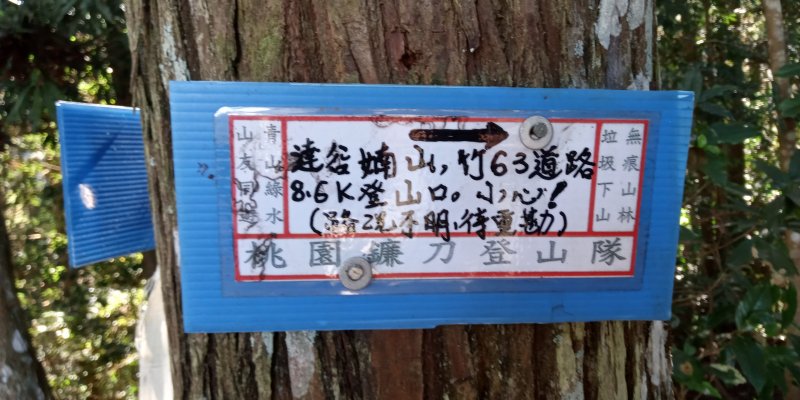 無痕山林
垃圾下山
→
達谷婻山,竹63道路
8.6K登山口。小心!
(路況不明,待重勘)
青山綠水
山友同遊
桃園鐮刀登山隊